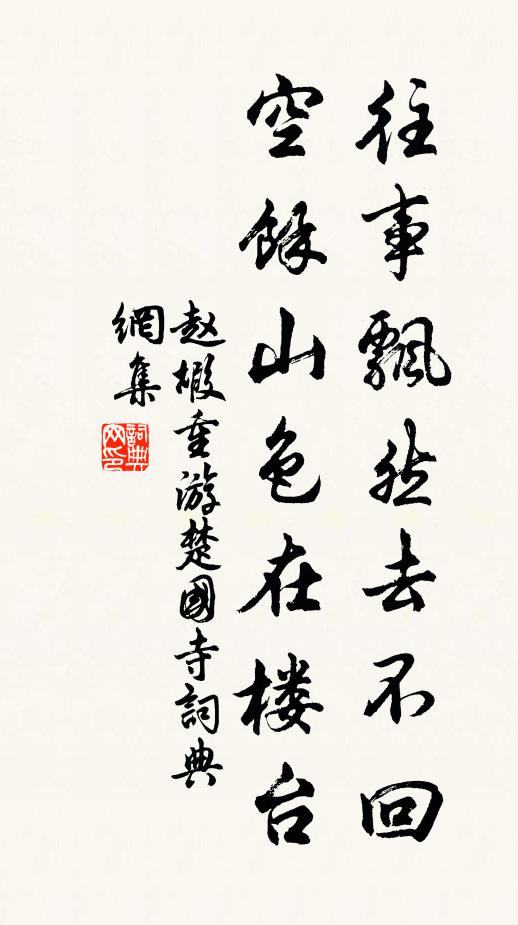 往事飄然去不回
空餘山色在楼台
赵嘏重游楚國寺詞典
網集
詞典网印